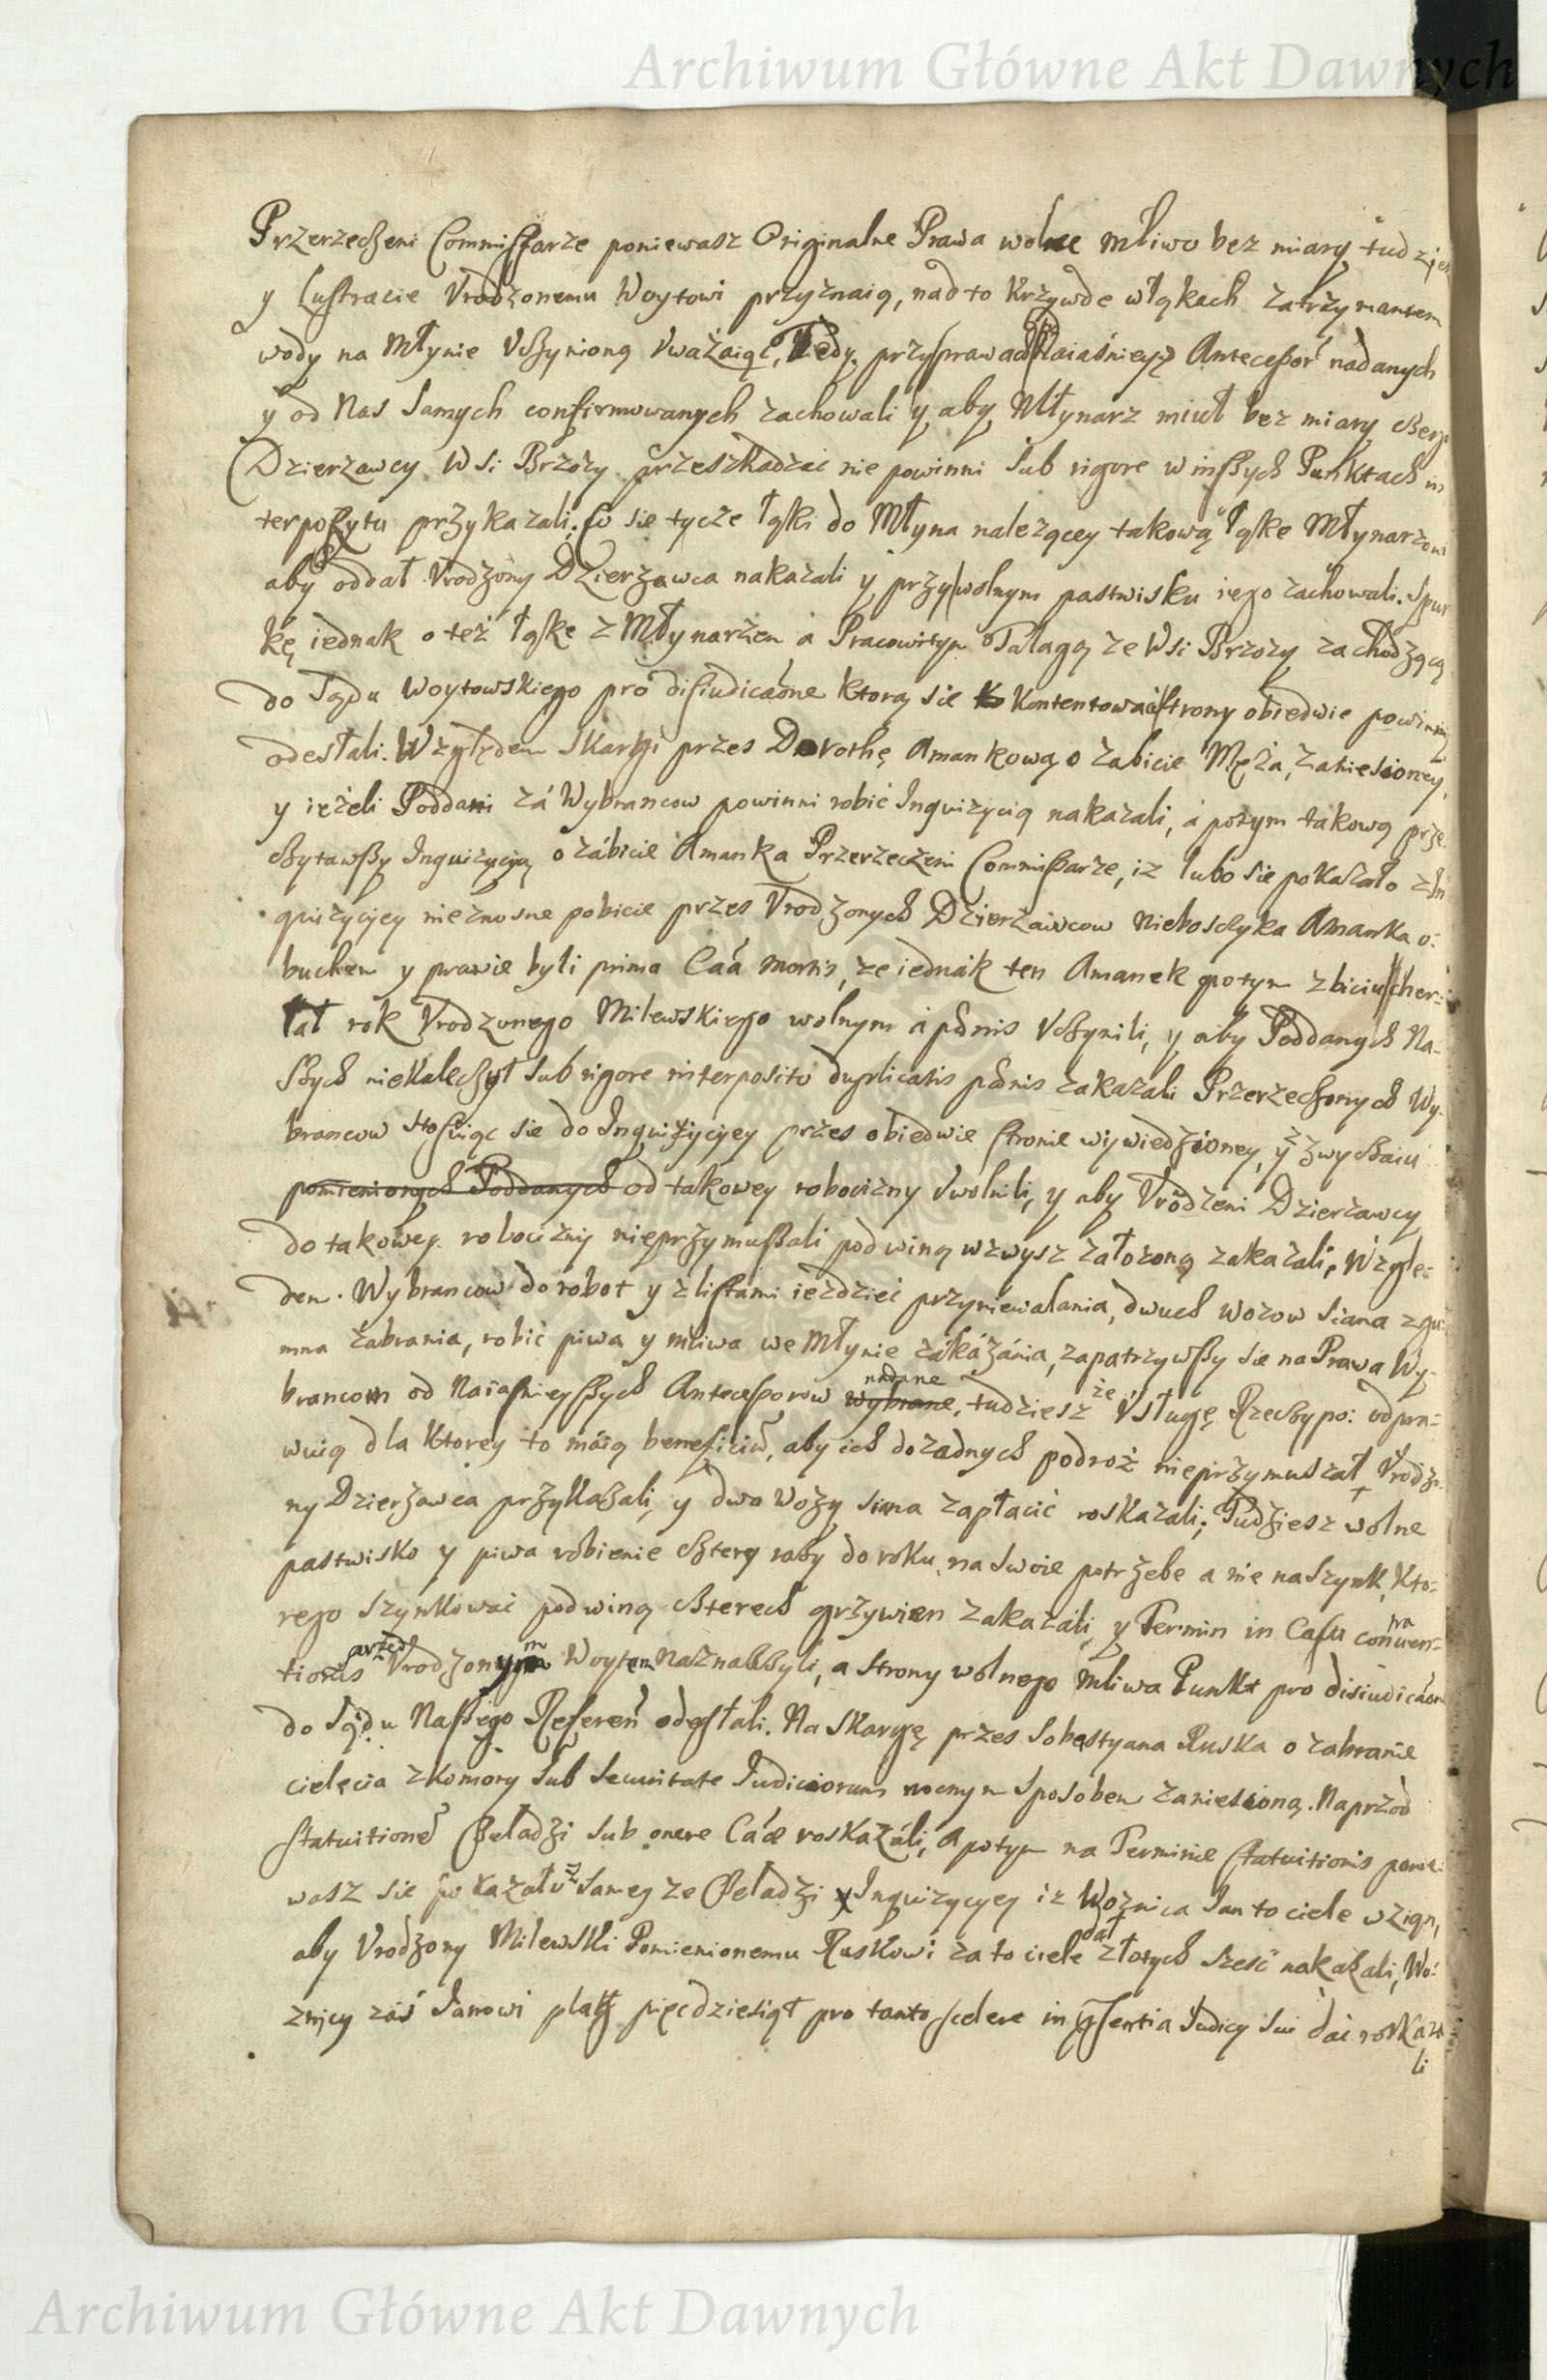 Archiwum Główne Akt Dawnych
Przerzeczeni Commissarze poniewasz Originalne Prawa wolne mliwo bez miary tudziesz
y Lustracie Vrodzonemu Woytowi przyznaią, nadto krzywde włąkach zatrzymaniem
wody na Młynie Vczynioną Vważaiąc, Tedy przy prawach Naiaśnieysz Antecessor nadanych
y od Nas samych confirmowanych zachowali y aby Młynarz miuł bez miary czego
Dzierzawcy Wsi Brzozy przeszkadzać nie powinni sub rigore w inszych Punktach in
terpozytu przykazali, Co sie tycze łąki do Młyna należącey takową łąke Młynarzowi
aby oddał Vrodzony Dzierzawca nakazali y przy wolnym pastwisku iego zachowali. Spur
kę iednak o też łąke z Młynarzem a Pracowitym Talagą ze Wsi Brzozy zachodzącą
do Sądu Woytowskiego pro disiudicaone ktorą sie kontentować strony obiedwie powinny
odesłali. Względem skargi przes Dorothę Amankową o zabicie Męża, zaniesioney,
y ieżeli Poddani zá Wybrancow powinni robić Inquizycią nakazali, á potym takową prze
czytawszy Inquizycyą o zábicie Amanka Przerzeczeni Commissarze, iz lubo sie pokazało z In
quizycyey nieznosne pobicie przes Vrodzonych Dzierzawcow nieboszczyka Amanka o:
buchem y prawie byli prima Caa mortis, ze iednák ten Amanek potym z biciu cher:
łał rok Vrodzonego Milewskiego wolnym á pænis Vczynili, y aby Poddanych Na-
szych niekaleczył sub rigore interposito duplicatis pænis zakazali Przerzeczonych Wy-
brancow stosuiąc sie do Inquizycyey przes obiedwie stronie wywiedzioney, y z zwyczaiu
pomienionych Poddanych od takowey robocizny Vwolnili, y aby Vrodzeni Dzierzawcy
do takowey robocizny nieprzymuszali pod winą wzwysz załozoną zakazali, Wzglę:
dem Wybrancow do robot y z listami ieździć przyniewalania, dwuch wozow siana z gu:
mna zabrania, robić piwa y mliwa we Młynie zákázánia, zapatrzywszy sie na Prawa Wy-
brancom od Naiaśnieyszych Antecessorow wybrane nadane, tudziesz że Vsługę Rzeczypo: odpra:
wuią dla ktorey to máią beneficiũ, aby ich do zadnych podroż nieprzymuszał Vrodzo
ny Dzierzawca przykazali, y dwa wozy siana zapłacić roskazali; Tudziesz wolne
pastwisko y piwa robienie cztery razy do roku na swoie potrzebe a nie na szynk, kto:
rego szynkować pod winą czterech grzywien zakazáli y Termin in Casu contraven:
tionis przed Vrodzonym Woytem naznaczyli, a strony wolnego mliwa Punkt pro disiudicaone
do Sądu Naszego Referen odesłali. Na skargę przes Sobestyana Ruska o zabranie
cielęcia z komory sub securitate Iudiciorum nocnym sposobem zaniesioną. Naprzod
statuitionē Czeladzi sub onere Caæ roskazáli, A potym na Terminie statuitionis ponie
wasz sie pokazało z samey ze Czeladzi Inquizycyey iz Woznica Ian to ciele wziął,
aby Vrodzony Milewski Pomienionemu Ruskowi za to ciele dał złotych sześć nakazali, Wo:
znicy zaś Ianowi plag pięcdziesiąt pro tanto scelere in præsentia Iudicy sui dać roskaza
li
Archiwum Główne Akt Dawnych